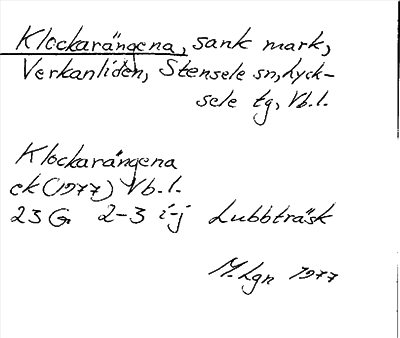 Klockarängena, sank mark,
Verkanliden, Stensele sn, Lyck-
sele tg, Vb.l.
Klockarängena
ek (1977) Vb.l.
23 G 2-3 i-j Lubbträsk
M. Lgn 1977